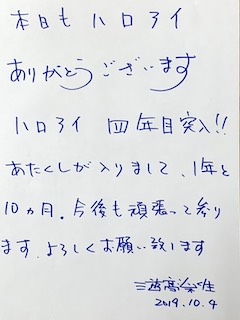 本日も ハロアイ
ありがとうございます
ハロアイ 四年目突入!!
あたくしが入りまして、1年と
10ヵ月。今後も頑張って参り
ます。よろしくお願い致します
2019.10.4